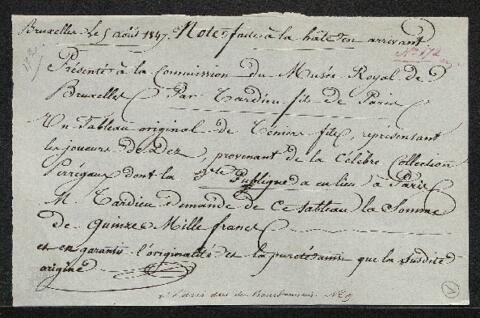 Bruxelles Le 5 août 1847. Note faite à la hâte en arrivant
N° 172
Présenté à la Commission du Musée Royal de
Bruxelles Par Tardieu fils de Paris
Un Tableau original de Teniers fils, représentant
les joueurs de Dez, provenant de la Célèbre Collection
Périgaux dont la Publique a eu lieu à Paris
M. Tardieu demande de ce tableau la Somme
de quinze Mille francs
et en garantit l'originalité et la pureté ainsi que la susdite
origine
à Paris rue de N° 9